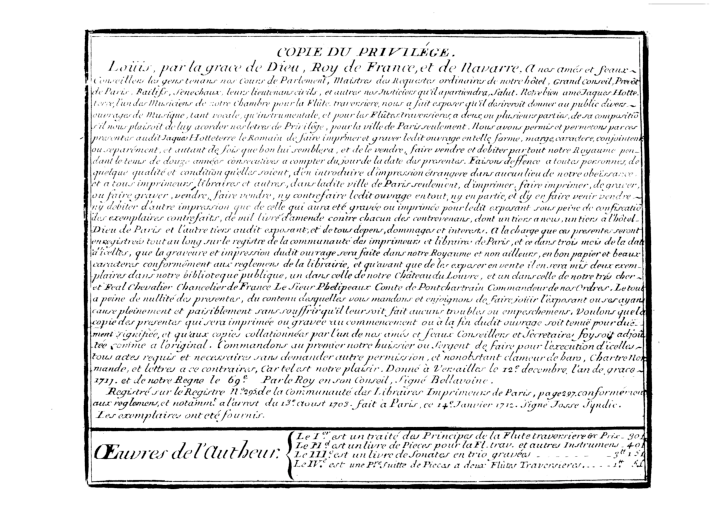 COPIE DU PRIVILÉGE.
Loüis, par la grace de Dieu, Roy de France, et de Navarre. A nos amés et feaux
Conseillers les gens tenans nos Cours de Parlement, Maistres des Requestes ordinaires de notre hôtel, grand Conseil, Prevôt
de Paris, Baillifs, Senechaux, leurs lieutenans civils, et autres nos Justiciers qu'il apartiendra, Salut. Notre bien amé Jaques Hotte
terre, l'un des Musiciens de notre Chambre pour la Flûte traversiere, nous a fait exposer qu'il desireroit donner au public divers
ouvrages de Musique, tant vocale, qu'instrumentale, et pour les Flûtes traversieres, a deux ou plusieurs parties, de sa compositiõ
s'il nous plaisoit de luy acorder nos letres de Privilége, pour la ville de Paris seulement. Nous avons permis et permetons par ces
presentes audit Jaques Hotteterre le Romain de faire imprimer et graver ledit ouvrage en telle forme, marge, caractere, conjointemt
ou separément, et autant de fois que bon lui semblera, et de le vendre, faire vendre et debiter par tout notre Royaume pen
dant le tems de douze années consecutives a compter du jour de la date des presentes. Faisons deffence a toutes personnes, de
quelque qualité et condition qu'elles soient, d'en introduire d'impression étrangere dans aucun lieu de notre obeissance
et a tous imprimeurs, libraires et autres, dans ladite ville de Paris seulement, d'imprimer, faire imprimer, de graver,
ou faire graver, vendre, faire vendre, ny contrefaire ledit ouvrage en tout, ny en partie, et d'y en faire venir vendre
ny debiter d'autre impression que de celle qui aura eté gravée ou imprimée pour ledit exposant sous peine de confiscatiõ
des exemplaires contrefaits, de mil livres d'amende contre chacun des contrevenans, dont un tiers a nous, un tiers à l'hôtel
Dieu de Paris et l'autre tiers audit exposant, et de tous depens, dommages et interests. A la charge que ces presentes seront
enregistrées tout au long sur le registre de la communauté des imprimeurs et libraires de Paris, et ce dans trois mois de la date
d'icelles, que la graveure et impression dudit ouvrage sera faite dans notre Royaume et non ailleurs, en bon papier et beaux
caracteres conformément aux reglemens de la librairie, et qu'avant que de les exposer en vente il en sera mis deux exem
plaires dans notre biblioteque publique, un dans celle de notre Château du Louvre, et un dans celle de notre trés cher
et Feal Chevalier Chancelier de France Le Sieur Phelipeaux Comte de Pontchartrain Commandeur de nos Ordres. Le tout
a peine de nullité des presentes, du contenu desquelles vous mandons et enjoignons de faire joüir l'exposant ou ses ayans
cause pleinement et paisiblement sans souffrir qu'il leur soit fait aucuns troubles ou empeschemens. Voulons que la
copie des presentes qui sera imprimée ou gravée au commencement ou à la fin dudit ouvrage soit tenuë pour duë
ment signifiée, et qu'aux copies collationnées par l'un de nos amés et feaux Conseillers et Secretaires foy soit adjoû
tée comme a l'original. Commandons au premier notre huissier ou Sergent de faire pour l'execution d'icelles
tous actes requis et necessaires sans demander autre permission, et nonobstant clameur de haro, Chartre Nor
mande, et lettres a ce contraires, Car tel est notre plaisir. Donné à Versailles le 12e. decembre, l'an de grace
1711. et de notre Regne le 69e. Par le Roy en son Conseil, Signé Bellavoine.
Registré sur le Registre No. 293 de la Communauté des Libraires Imprimeurs de Paris, page 297, conformément
aux reglemens, et notãmt a l'arrest du 13e. aoust 1703. fait à Paris, ce 14e. Janvier 1712. Signé Josse Syndic.
Les exemplaires ont eté fournis.
Œuvres de l'Autheur.
Le Ier est un traité des Principes de la Flute traversiere &c Pris
Le IIe. est un livre de Pieces pour la Fl. trav. et autres Instrumens
Le IIIe. est un livre de Sonates en trio gravées
Le IVe. est une Pre. Suitte de Pieces a deux Flûtes Traversieres